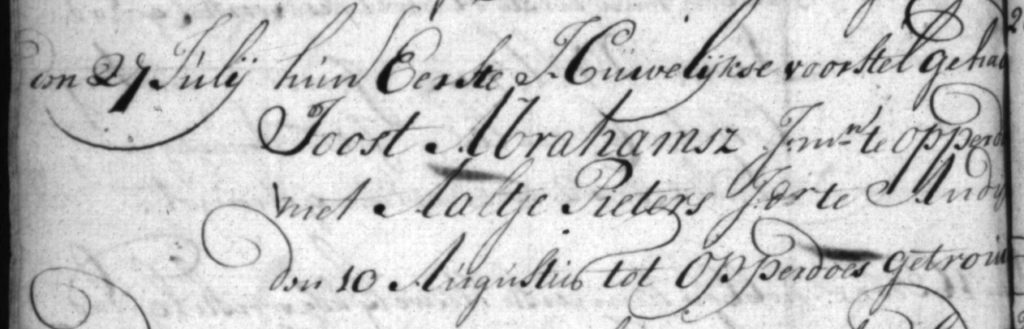 den 27 Julij hun Eerste Huwelijkse voorstel gehad
Joost Abrahamsz J:mn te opperd
met Aaltje Pieters J:dr te Andij
den 10 Augustus tot Opperdoes getrouw